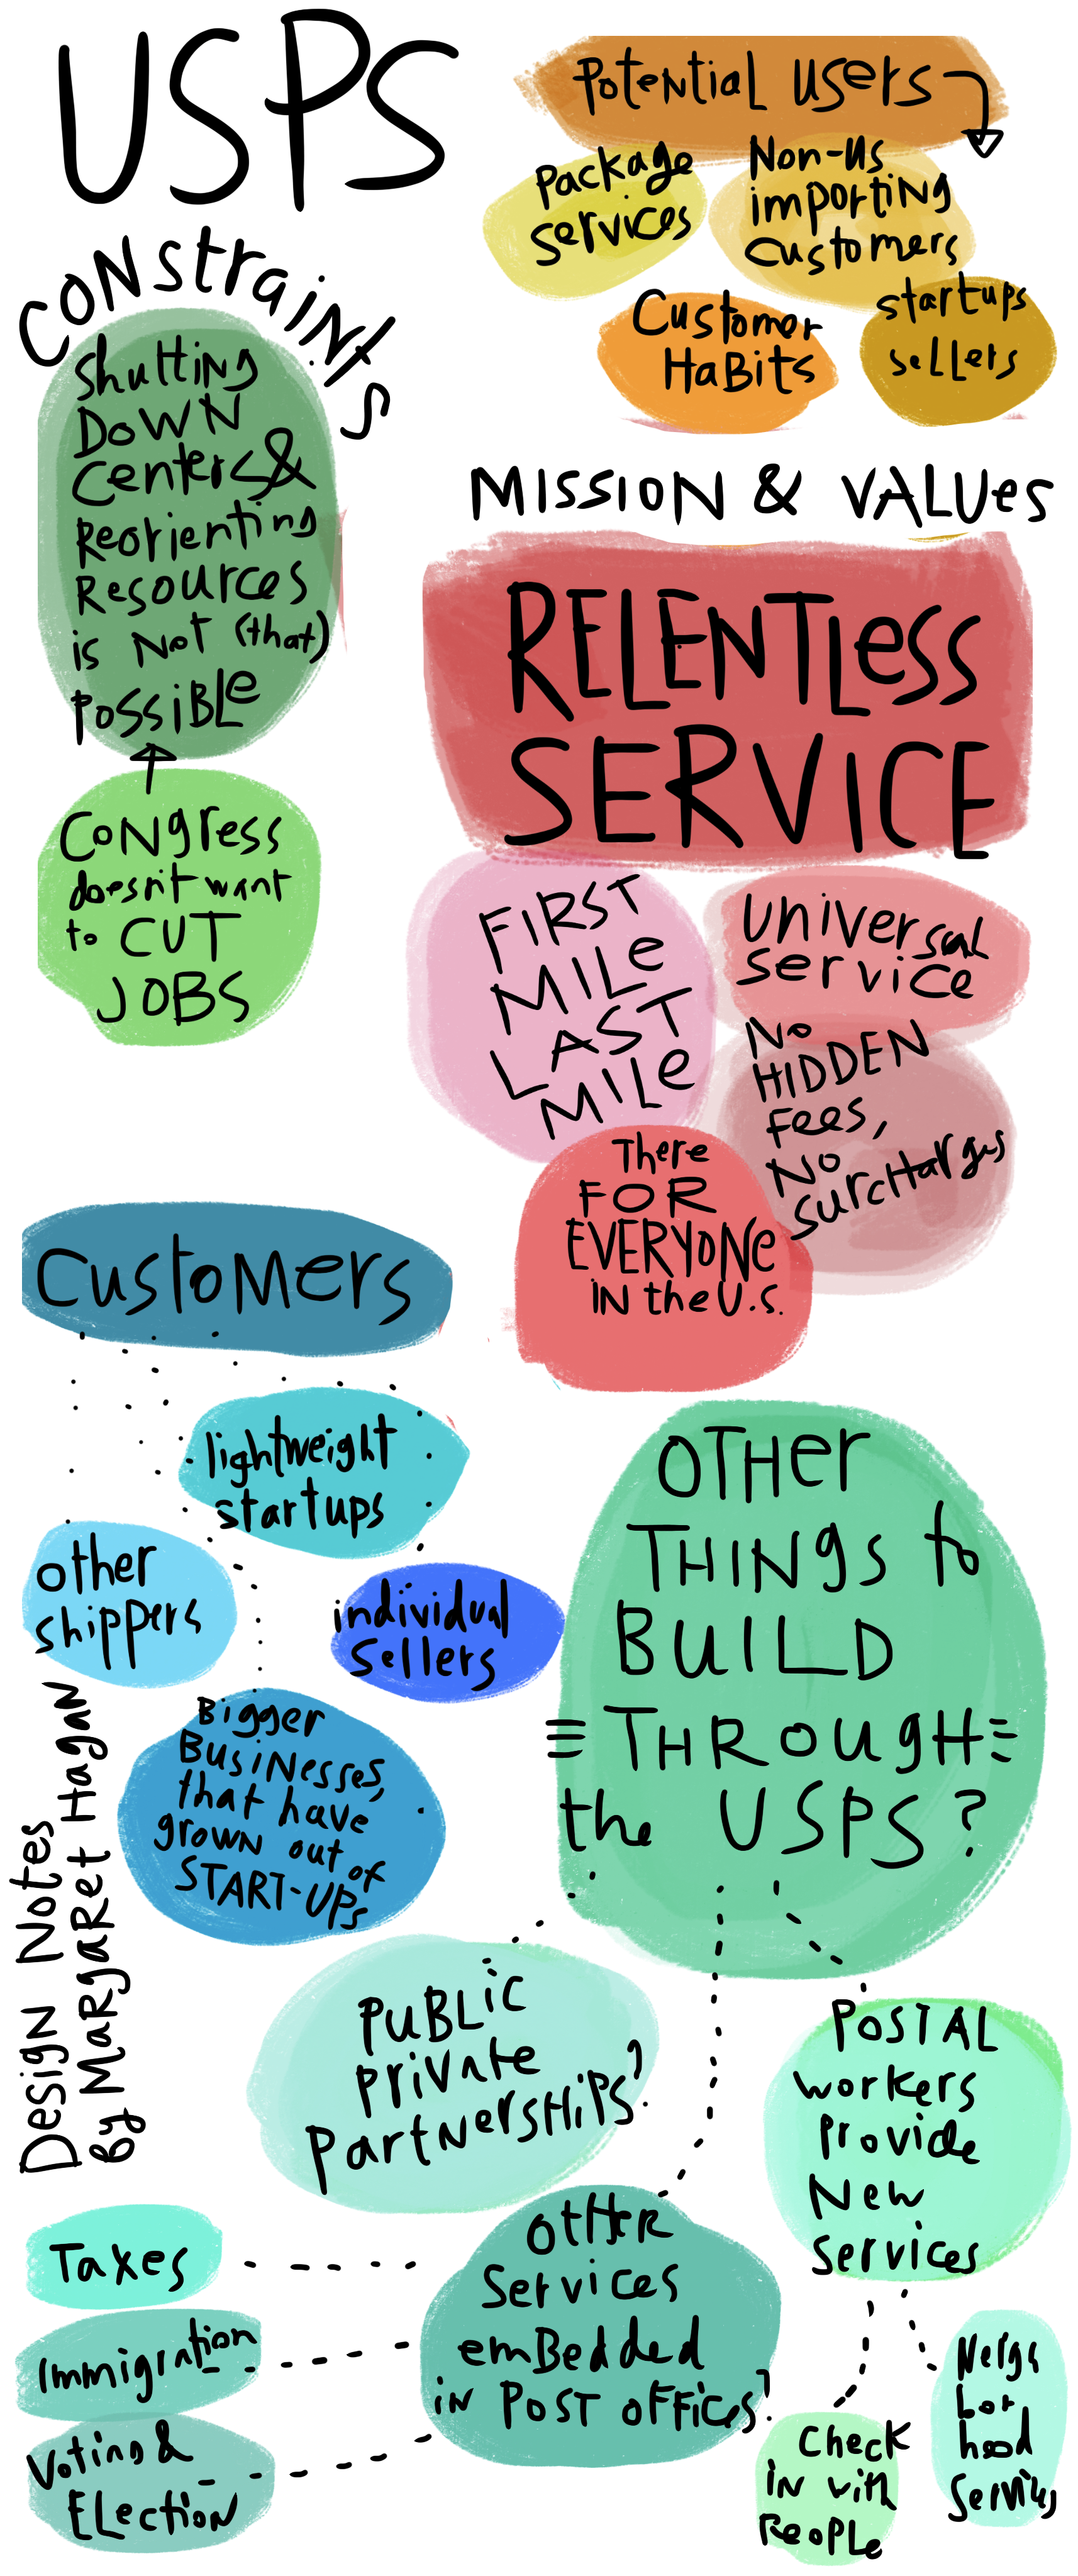 USPS
Potential users
Package
services
Non-US
importing
customers
Customer
Habits
startups
sellers
Constraints
Shutting
Down
Centers &
Reorienting
Resources
is Not (that)
Possible
Congress
doesn't want
to CUT
JOBS
MISSION & VALUes
RELENTLess
SERVICE
FIRST
MILe
LAST
MILe
universal
service
No
HIDDEN
fees,
No
surcHarges
There
FOR
EVERYONe
IN the U.S.
Customers
lightweight
startups
other
shippers
individual
sellers
Bigger
Businesses,
that have
grown out of
START-UPs
Design Notes
By MaRgaRet Hagan
OTHer
THINgs to
BUILD
THROUgH
the USPS?
PUBLic
Private
PartnersHips?
POSTAL
workers
Provide
New
Services
OtHeR
Services
emBedded
in POST OFFices?
Taxes
Immigration
Voting &
ELection
Check
in with
PeoPLe
Neigh
bor
hood
Services